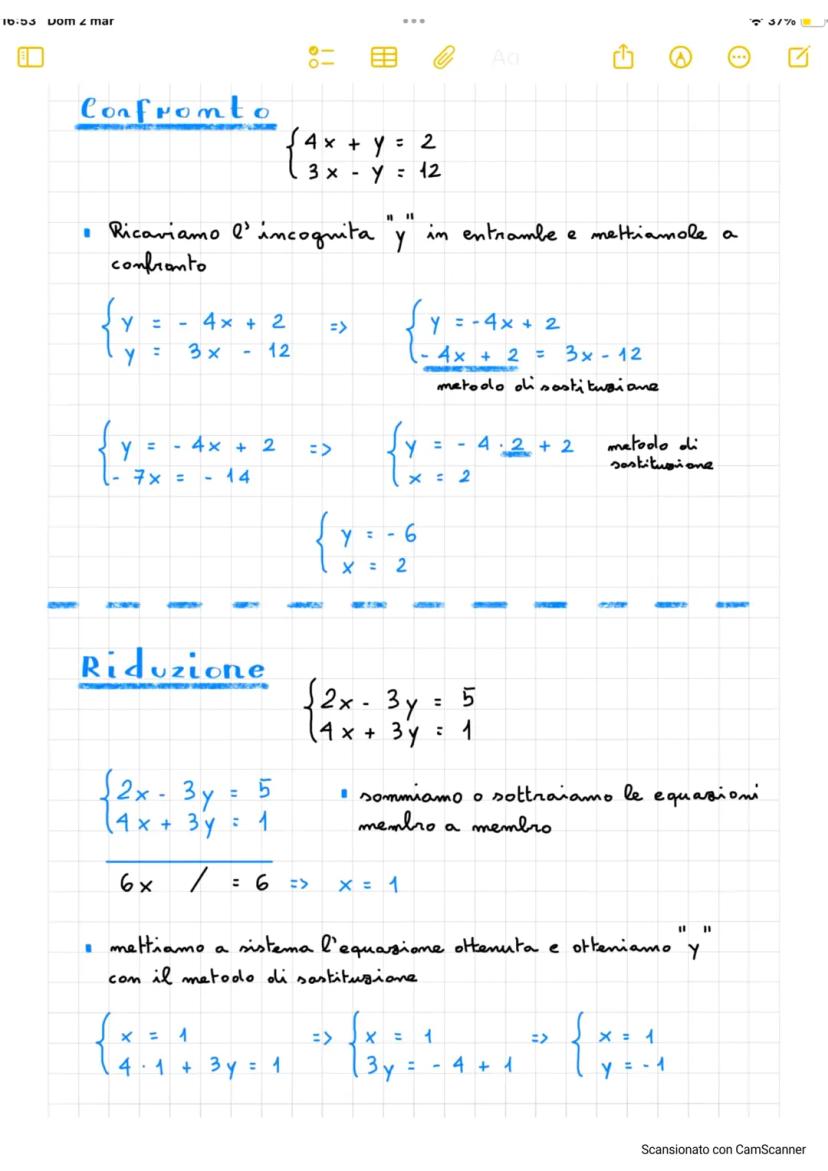 16:53 Dom 2 mar
37%
Confronto
4x + y = 2
3x - y = 12
Ricaviamo l'incognita "y" in entrambe e mettiamole a
confronto
y = - 4x + 2 => y = -4x + 2
y = 3x - 12 - 4x + 2 = 3x - 12
metodo di sostituzione
y = - 4x + 2 => y = - 4 · 2 + 2 metodo di
- 7x = - 14 x = 2 sostituzione
y = - 6
x = 2
Riduzione
2x - 3y = 5
4x + 3y = 1
2x - 3y = 5 sommiamo o sottraiamo le equazioni
4x + 3y = 1 membro a membro
6x / = 6 => x = 1
mettiamo a sistema l'equazione ottenuta e otteniamo "y"
con il metodo di sostituzione
x = 1 => x = 1 => x = 1
4 · 1 + 3y = 1 3y = - 4 + 1 y = - 1
Scansionato con CamScanner